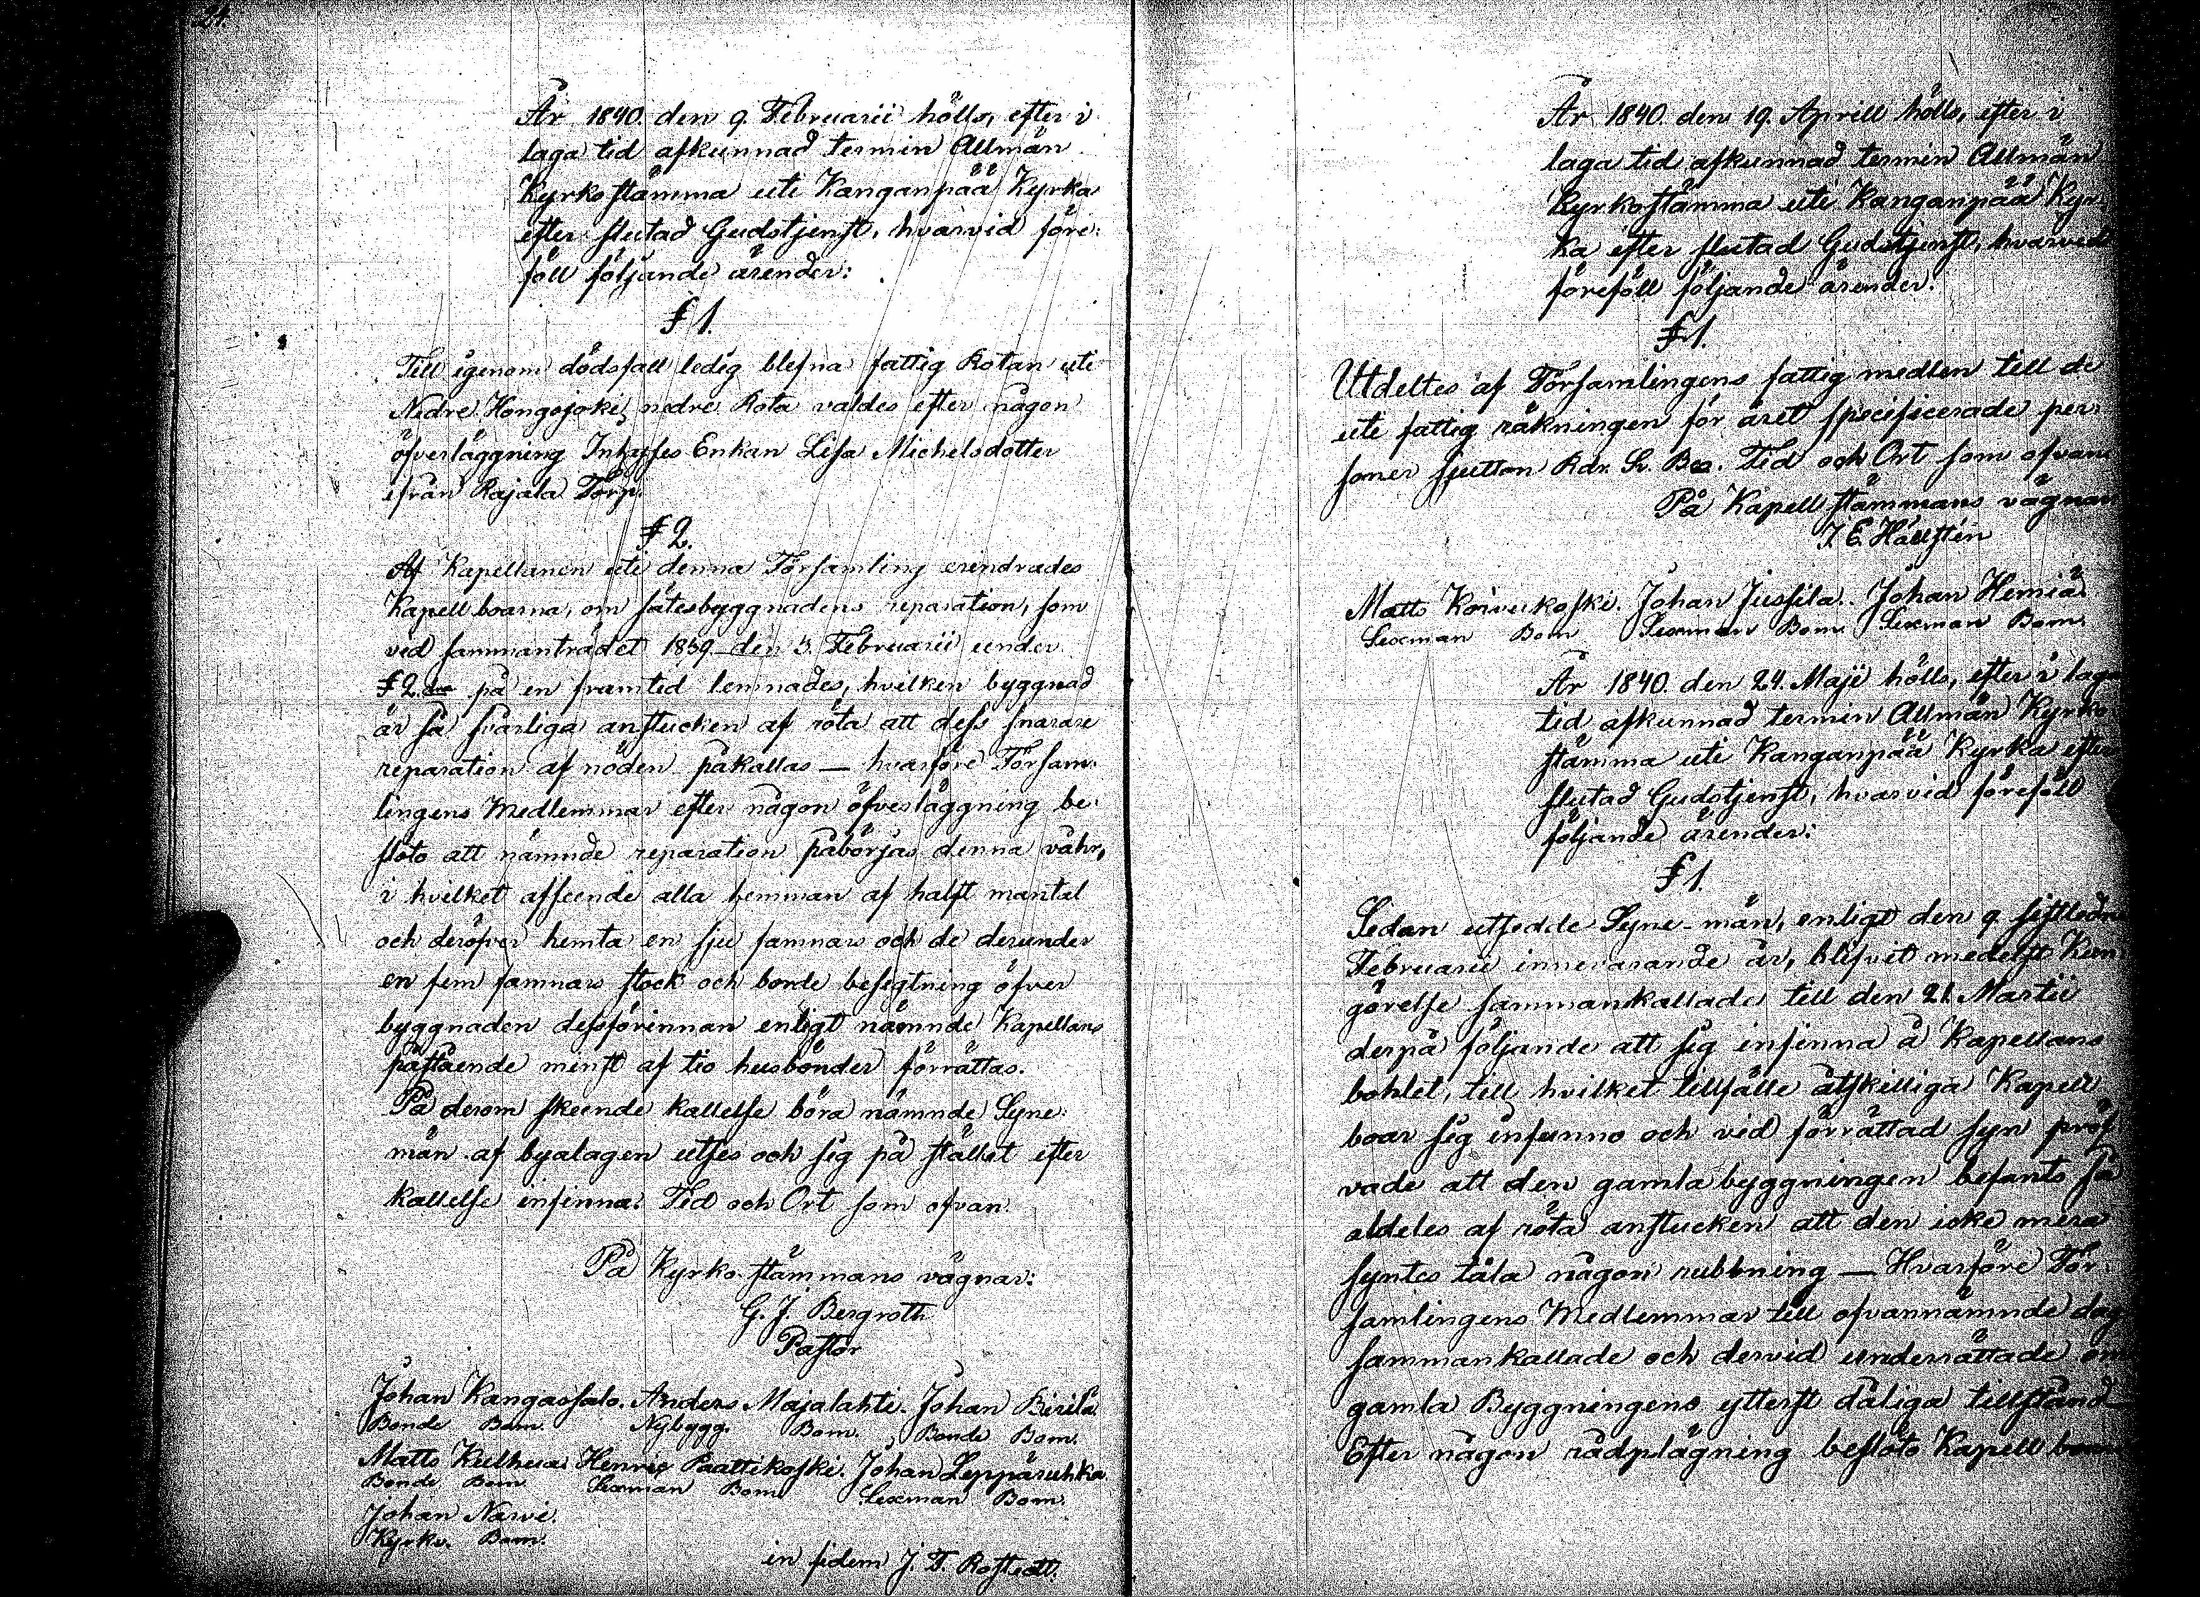 24.
År 1840. den 9. Februarii hölls, efter i
laga tid afkunnad termin Allmän
Kyrkostämma uti Kanganpää Kyrka
efter slutad Gudstjenst, hvarvid före-
föll följande ärender:
§ 1.
Till igenom dödsfall ledig blefna fattig Rotan uti
Nedre Hongojoki nedre Rota valdes efter någon
öfverläggning Inhyses Enkan Lisa Michelsdotter
ifrån Rajala Torp.
§ 2.
Af Kapellanen uti denna Församling erindrades
Kapellboarna, om sätesbyggnadens reparation, som
vid sammanträdet 1839 den 3. Februarii under
§ 2 på en framtid lemnades, hvilken byggnad
är så svårliga anstucken af röta att dess snarare
reparation af nöden påkallas — hvarföre Försam-
lingens Medlemmar efter någon öfverläggning be-
slöto att nämnde reparation påbörjas denna vahr,
i hvilket afseende alla hemman af halft mantal
och deröfver hemta en sju famnars och de derunder
en fem famnars stock och borde besigtning öfver
byggnaden dessförinnan enligt nämnde Kapellans
påstående minst af tio husbönder förrättas.
På derom skeende kallelse böra nämnde Syne-
män af byalagen utses och sig på stället efter
kallelse infinna. Tid och Ort som ofvan.
På Kyrko-stämmans vägnar:
G. J. Bergroth
Pastor
Johan Kangassalo. Anders Majalahti. Johan Kirilä
Bonde Bom. Nybygg. Bom. Bonde Bom.
Matts Kulhua Henric Paattikoski. Johan Leppäruhka
Bonde Bom Sexman Bom Sexman Bom.
Johan Narvi.
Kyrkv. Bom.
in fidem J. F. Rostedt.
År 1840 den 19. Aprill hölls, efter i
laga tid afkunnad termin Allmän
Kyrkostämma uti Kanganpää Kyr-
ka efter slutad Gudstjenst, hvarvid
föreföll följande ärender.
§ 1.
Utdeltes af Församlingens fattig medlen till de
uti fattig räkningen för året specificerade per-
soner sjutton Rdr. S. Bco. Tid och Ort som ofvan
På Kapell stämmans vägnar
J E Hällsten
Matts Koivukoski. Johan Jussila. Johan Hemiä.
Sexman Bom Sexman Bom Sexman Bom.
År 1840. den 24. Maji hölls, efter i laga
tid afkunnad termin Allmän Kyrko
stämma uti Kanganpää Kyrka efter
slutad Gudstjenst, hvarvid föreföll
följande ärender:
§ 1.
Sedan utsedde Syne-män, enligt den 9 sistledn
Februarii innevarande år, blifvit medelst Kun
görelse sammankallade till den 21. Martii
derpå följande att sig infinna å Kapellans
bohlet, till hvilket tillfälle åtskilliga Kapell
boar sig infunno och vid förrättad syn pröf
vade att den gamla byggningen befants så
aldeles af röta anstucken att den icke mera
syntes tåla någon rubbning — Hvarföre För-
samlingens Medlemmar till ofvannämnde dag
sammankallade och dervid underrättade om
gamla Byggningens ytterst dåliga tillstånd
Efter någon rådplägning beslöto Kapell